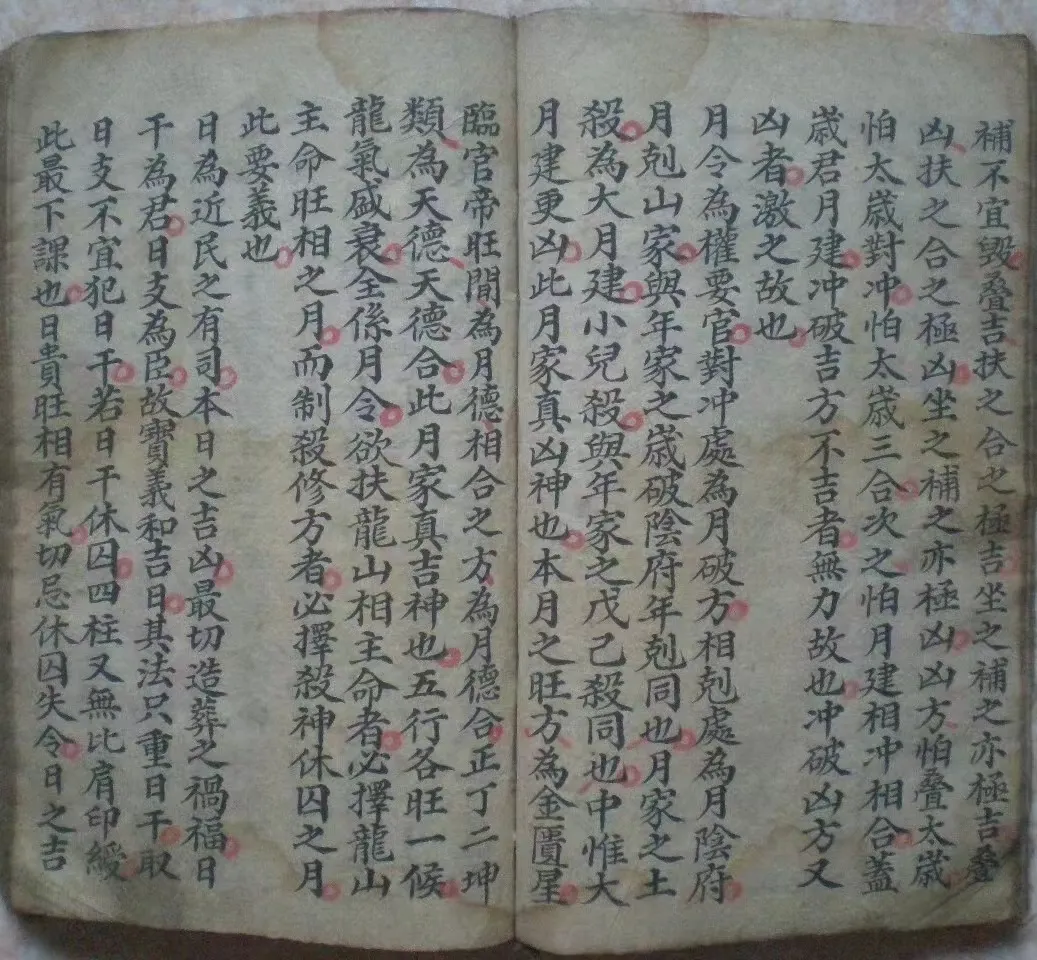 補不宜毀疊吉扶之合之極吉坐之補之亦極吉疊
凶扶之合之極凶坐之補之亦極凶凶方怕疊太歲
怕太歲對冲怕太歲三合次之怕月建相冲相合蓋
歲君月建冲破吉方不吉者無力故也冲破凶方又
凶者激之故也
月令為權要官對冲處為月破方相剋處為月陰府
月剋山家與年家之歲破陰府年剋同也月家之土
殺為大月建小兒殺與年家之戊己殺同也中惟大
月建更凶此月家真凶神也本月之旺方為金匱星
臨官帝旺間為月德相合之方為月德合正丁二坤
類為天德天德合此月家真吉神也五行各旺一候
龍氣盛衰全係月令欲扶龍山相主命者必擇龍山
主命旺相之月而制殺修方者必擇殺神休囚之月
此要義也
日為近民之有司本日之吉凶最切造葬之禍福日
干為君日支為臣故寶義和吉日其法只重日干取
日支不宜犯日干若日干休囚四柱又無比肩印綬
此最下課也日貴旺相有氣切忌休囚失令日之吉